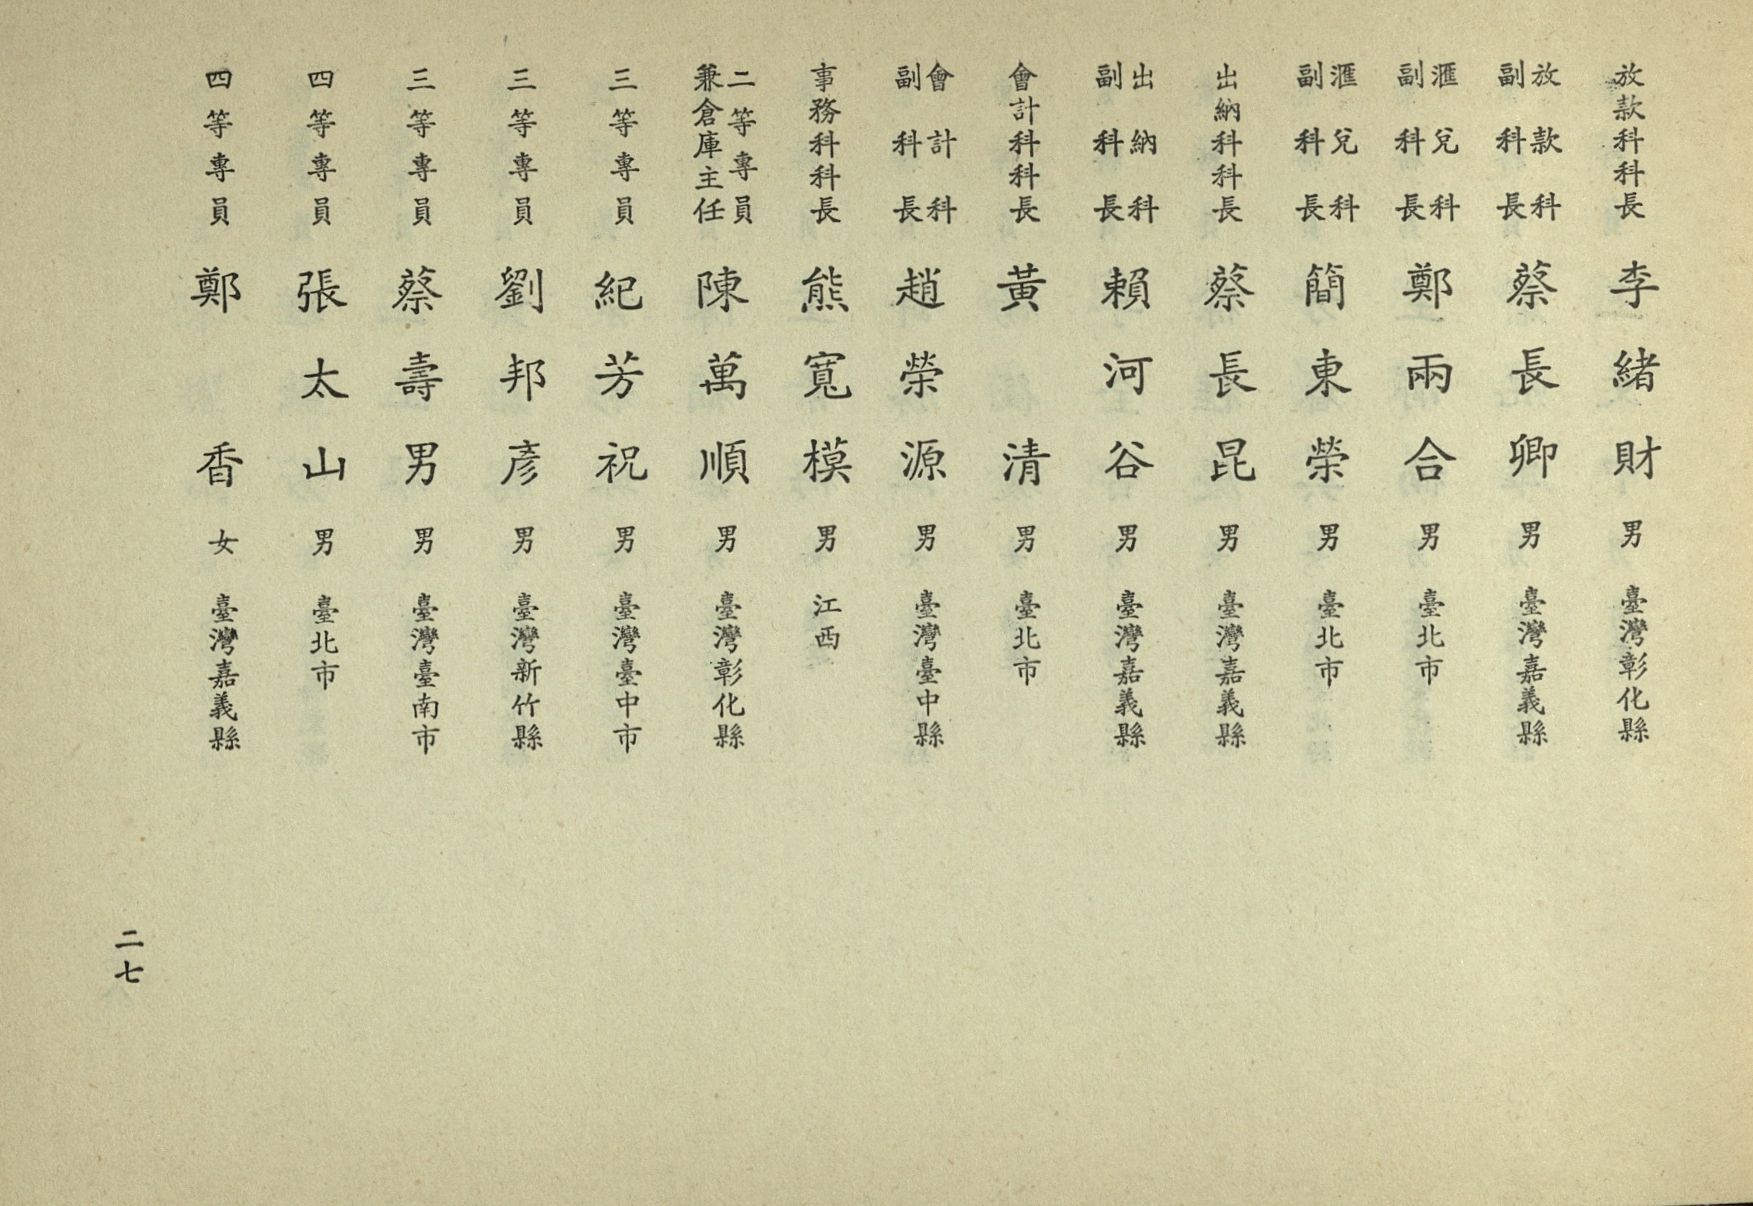 放款科科長 李緒財 男 臺灣彰化縣
放款科副科長 蔡長卿 男 臺灣嘉義縣
滙兌科副科長 鄭兩合 男 臺北市
滙兌科副科長 簡東榮 男 臺北市
出納科科長 蔡長昆 男 臺灣嘉義縣
出納科副科長 賴河谷 男 臺灣嘉義縣
會計科科長 黃清 男 臺北市
會計科副科長 趙榮源 男 臺灣臺中縣
事務科科長 熊寬模 男 江西
二等專員兼倉庫主任 陳萬順 男 臺灣彰化縣
三等專員 紀芳祝 男 臺灣臺中市
三等專員 劉邦彥 男 臺灣新竹縣
三等專員 蔡壽男 男 臺灣臺南市
四等專員 張太山 男 臺北市
四等專員 鄭香 女 臺灣嘉義縣
二七